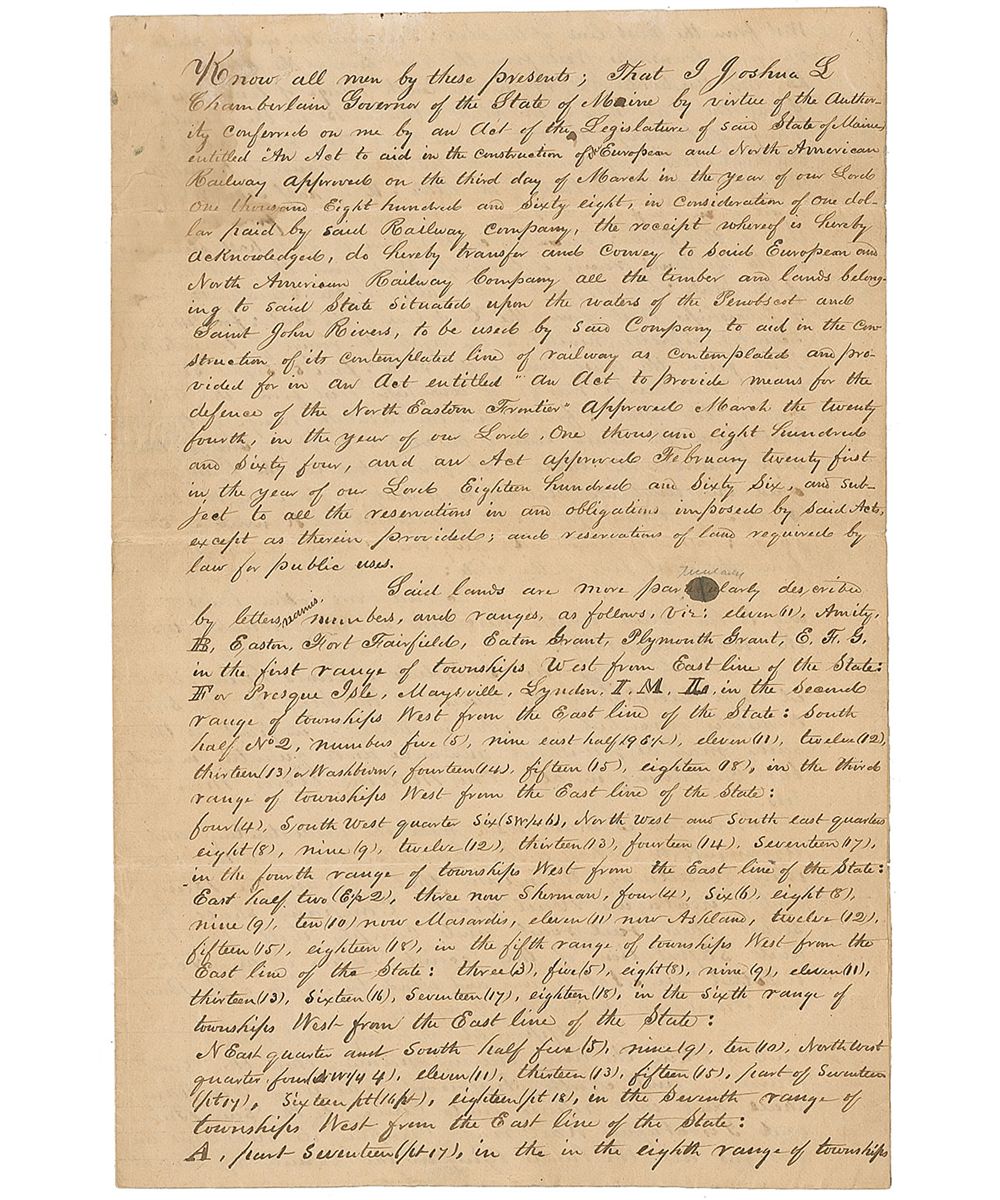 Know all men by these presents; That I Joshua L
Chamberlain Governor of the State of Maine by virtue of the Author-
ity conferred on me by an Act of the Legislature of said State of Maine
entitled "An Act to aid in the construction of the European and North American
Railway approved on the third day of March in the year of our Lord
One thousand Eight hundred and Sixty eight, in consideration of one dol-
lar paid by said Railway company, the receipt whereof is hereby
acknowledged, do hereby transfer and convey to said European and
North American Railway Company all the timber and lands belong-
ing to said State situated upon the waters of the Penobscot and
Saint John Rivers, to be used by said Company to aid in the con-
struction of its contemplated line of railway as contemplated and pro-
vided for in an Act entitled "an Act to provide means for the
defence of the North Eastern Frontier" approved March the twenty
fourth, in the year of our Lord, One thousand eight hundred
and Sixty four, and an Act approved February twenty first
in the year of our Lord Eighteen hundred and Sixty Six, and sub-
ject to all the reservations in and obligations imposed by said Acts,
except as therein provided; and reservations of land required by
law for public uses.
Said lands are more particularly described
by letters, names, numbers, and ranges, as follows, viz: eleven (11), Amity,
B, Easton, Fort Fairfield, Eaton Grant, Plymouth Grant, E, F, G,
in the first range of townships West from East line of the State:
F or Presque Isle, Maysville, Lyndon, I, M, L, in the second
range of townships West from the East line of the State: South
half No 2, number five (5), nine east half (9 E½), eleven (11), twelve (12),
thirteen (13) or Washburn, fourteen (14), fifteen (15), eighteen (18), in the third
range of townships West from the East line of the State:
four (4), South West quarter Six (SW¼ 6), North West and South east quarters
eight (8), nine (9), twelve (12), thirteen (13), fourteen (14), Seventeen (17),
in the fourth range of townships West from the East line of the State:
East half two (E½ 2), three now Sherman, four (4), Six (6), eight (8),
nine (9), ten (10) now Masardis, eleven (11) now Ashland, twelve (12),
fifteen (15), eighteen (18), in the fifth range of townships West from the
East line of the State: three (3), five (5), eight (8), nine (9), eleven (11),
thirteen (13), Sixteen (16), Seventeen (17), eighteen (18), in the Sixth range of
townships West from the East line of the State:
N East quarter and South half five (5), nine (9), ten (10), North West
quarter four (NW¼ 4), eleven (11), thirteen (13), fifteen (15), part of Seventeen
(pt 17), Sixteen pt (16 pt), eighteen (pt 18), in the Seventh range of
townships West from the East line of the State:
A, part Seventeen (pt 17), in the in the eighth range of townships